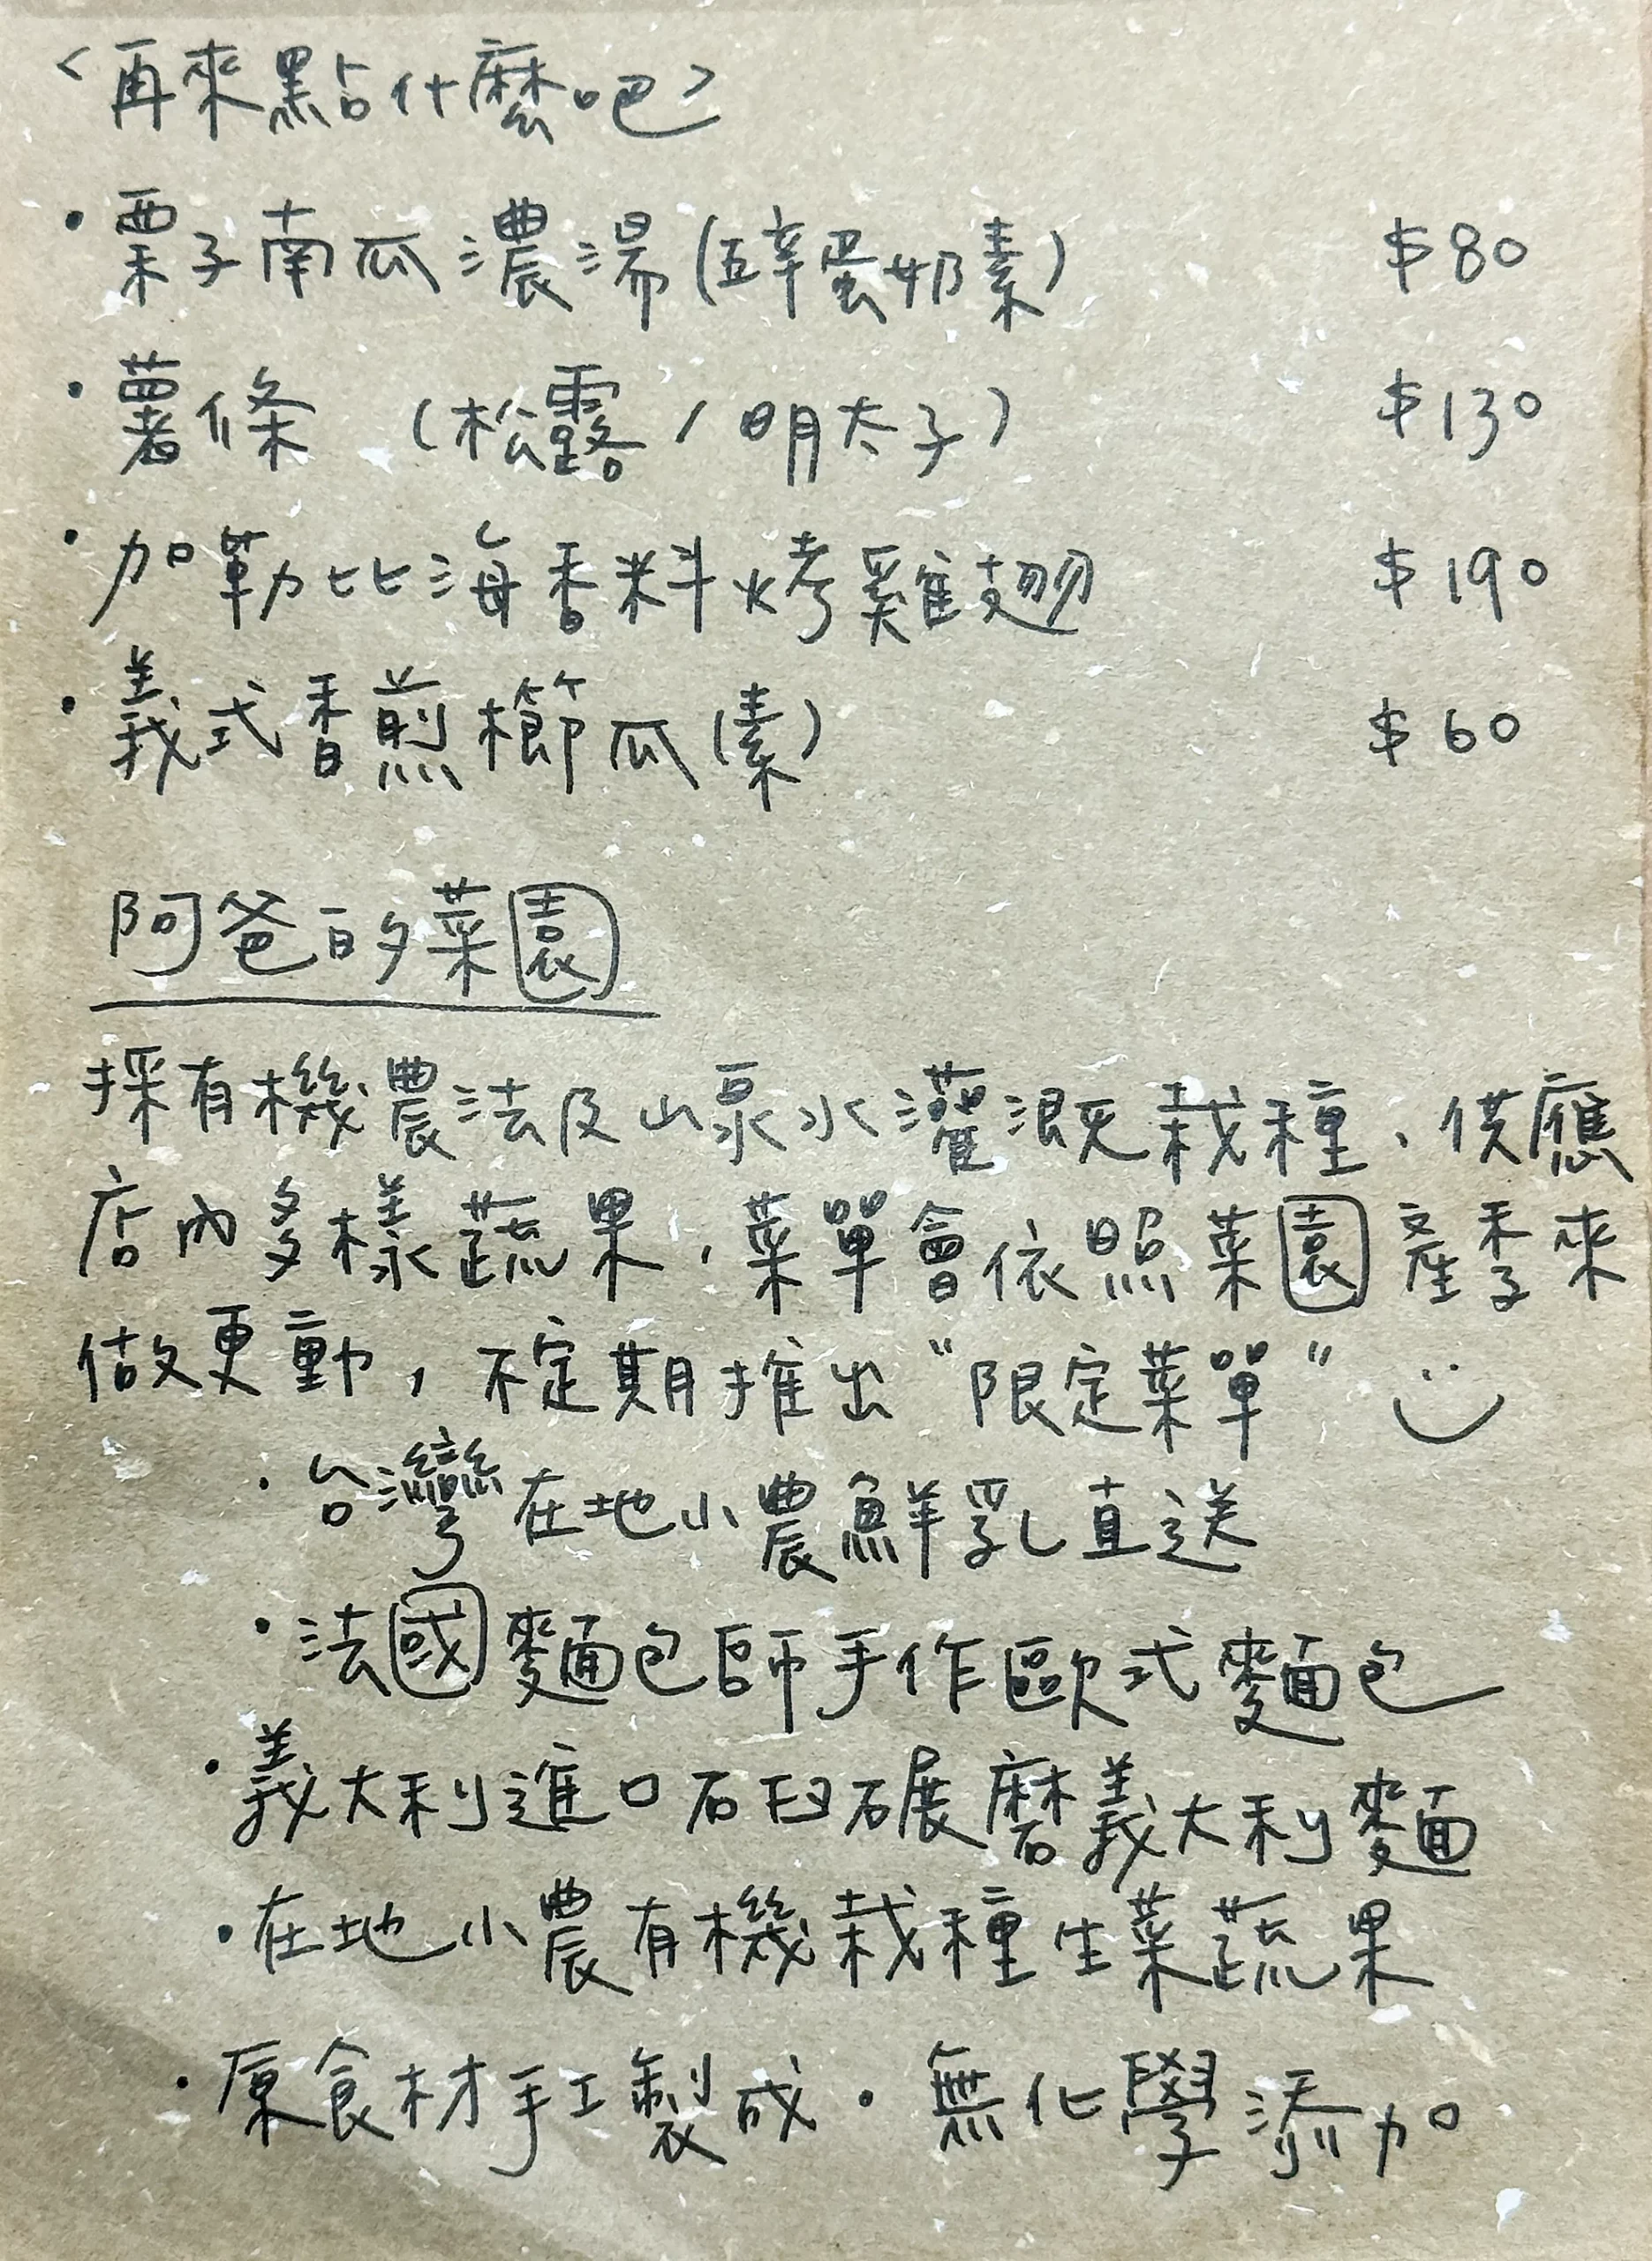 <再來點什麼吧>
·栗子南瓜濃湯(五辛蛋奶素) $80
·薯條 (松露/明太子) $130
·加勒比海香料烤雞翅 $190
·義式香煎櫛瓜(素) $60
阿爸的菜園
採有機農法及山泉水灌溉栽種、供應
店內多樣蔬果,菜單會依照菜園產季來
做更動,不定期推出“限定菜單”
·台灣在地小農鮮乳直送
·法國麵包師手作歐式麵包
·義大利進口石臼碾磨義大利麵
·在地小農有機栽種生菜蔬果
·原食材手工製成·無化學添加